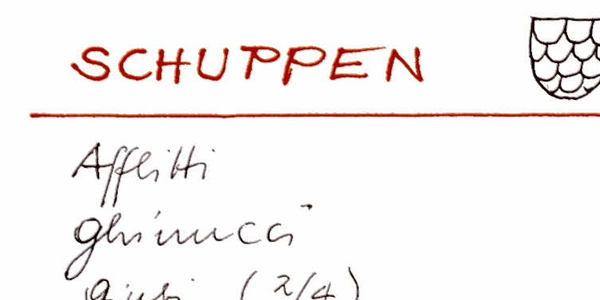 SCHUPPEN
Afflitti
Ghinucci
(2/4)